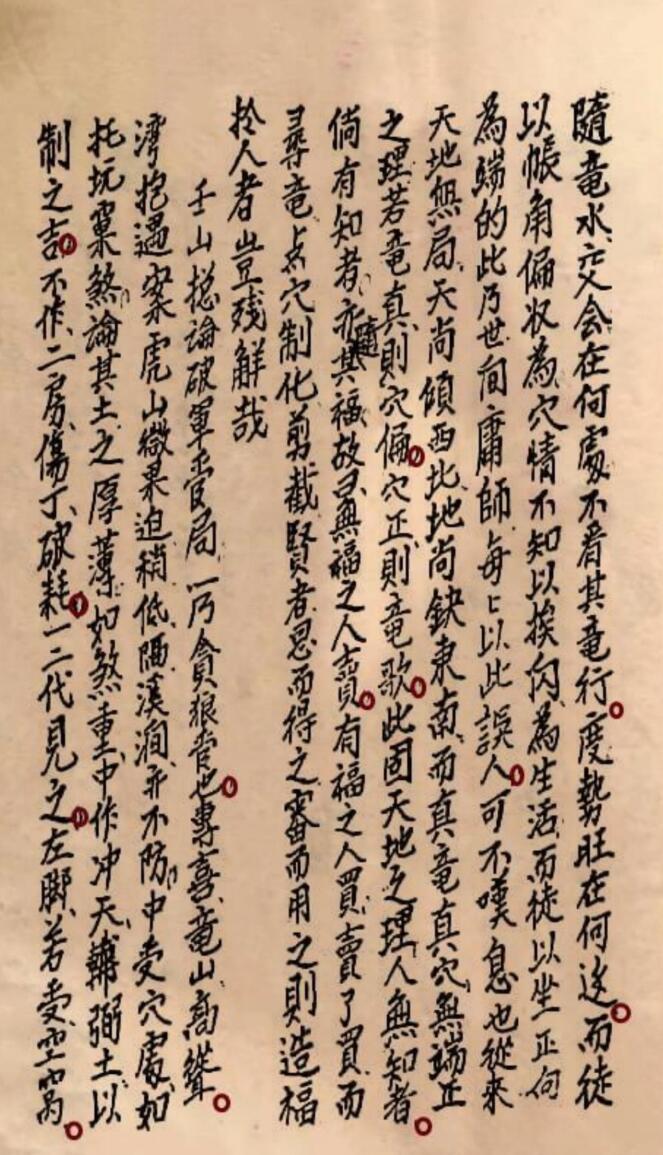 隨竜水交会在何處不看其竜行度勢旺在何送而徒
以帳角偏収為穴情不知以挨闪為生活而徒以坐正向
為端的此乃世间庸師每々以此誤人可不嘆息也從来
天地無局天尚傾西北地尚缺東南而真竜真穴無端正
之理若竜真則穴偏穴正則竜歌此固天地之理人無知者
倘有知者亦隨其福故曰無福之人賣有福之人買賣了買而
尋竜点穴制化剪裁賢者思而得之審而用之則造福
於人者豈殘鮮哉
壬山総論破軍管局一乃貪狼管也專喜竜山高聳
湾抱過案虎山微果迫稍低陋溪澗亦不防中受穴處如
托坑窠煞論其土之厚薄如煞重中作冲天輔弼土以
制之吉不作二房傷丁破耗一二代見之左脚若受空窩